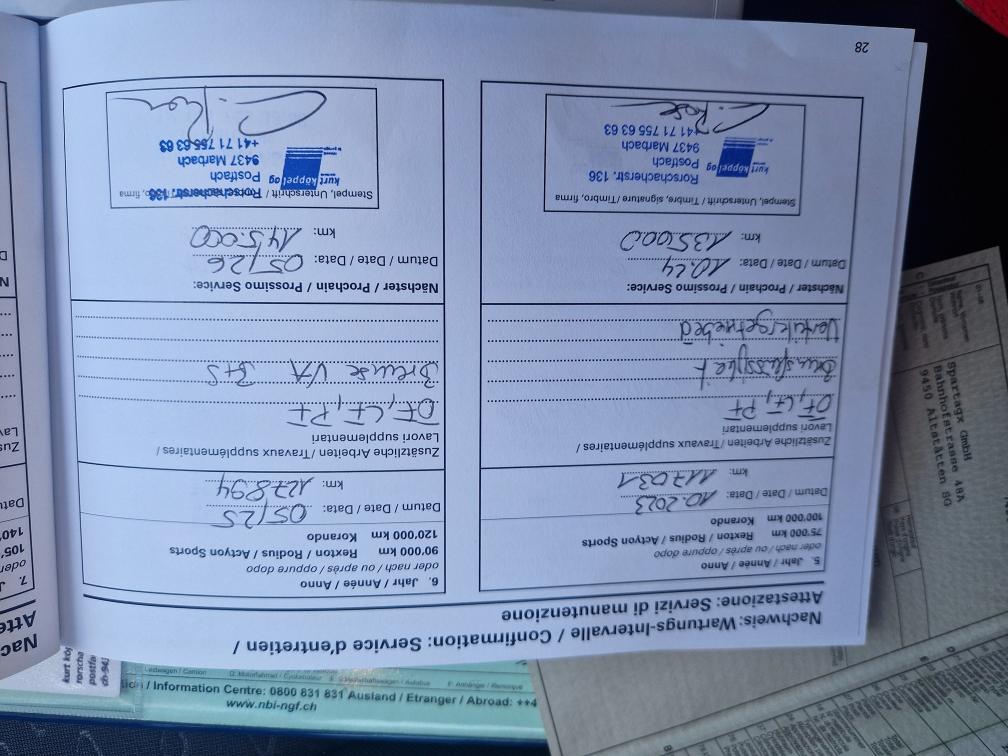 Nachweis: Wartungs-Intervalle / Confirmation: Service d'entretien /
Attestazione: Servizi di manutenzione
5. Jahr / Année / Anno
oder nach / ou après / oppure dopo
75'000 km Rexton / Rodius / Actyon Sports
100'000 km Korando
Datum / Date / Data: 10.2023
km: 117031
Zusätzliche Arbeiten / Travaux supplémentaires /
Lavori supplementari
ÖF, LF, PF
Bremsflüssigkeit
Verteilergetriebeöl
Nächster / Prochain / Prossimo Service:
Datum / Date / Data: 10.24
km: 135000
Stempel, Unterschrift / Timbre, signature / Timbro, firma
kurt köppel ag
Rorschacherstr. 136
Postfach
9437 Marbach
+41 71 755 63 63
6. Jahr / Année / Anno
oder nach / ou après / oppure dopo
90'000 km Rexton / Rodius / Actyon Sports
120'000 km Korando
Datum / Date / Data: 05/25
km: 127894
Zusätzliche Arbeiten / Travaux supplémentaires /
Lavori supplementari
ÖF, LF, PF
Bremse VA B+S
Nächster / Prochain / Prossimo Service:
Datum / Date / Data: 05/26
km: 145000
Stempel, Unterschrift /
kurt köppel ag
Rorschacherstr. 136
Postfach
9437 Marbach
+41 71 755 63 63
28
Nac
Atte
7. J
oder
105'
140'
Datu
Zus
Lav
Spartagx GmbH
Bahnhofstrasse 48A
9450 Altstätten SG
/ Information Centre: 0800 831 831 Ausland / Etranger / Abroad: ++4
www.nbi-ngf.ch
kurt köp
rorscha
postfa
ch-943